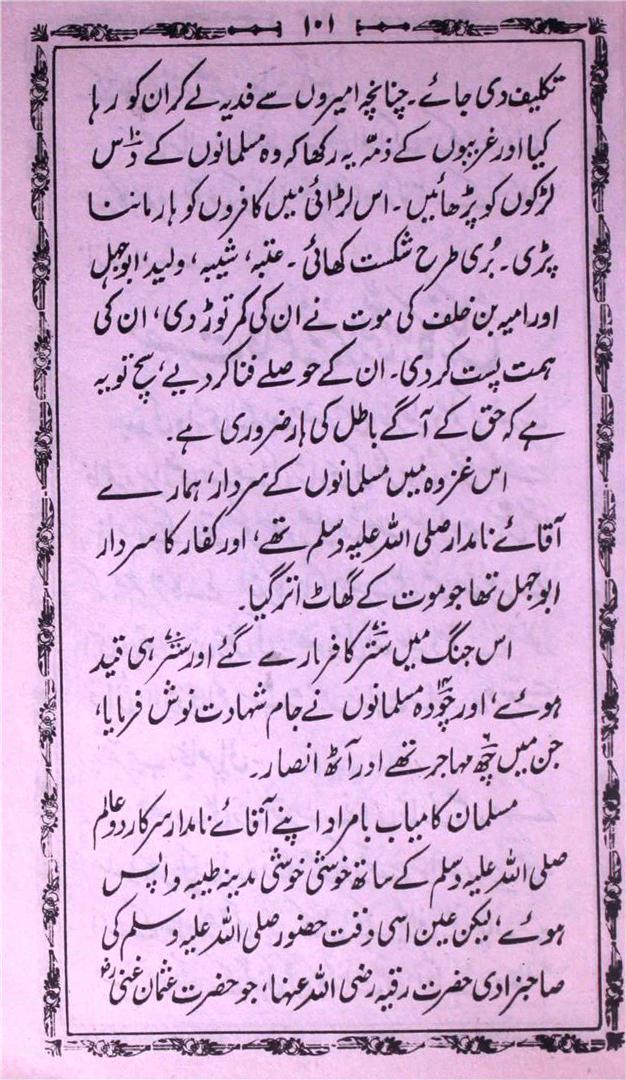 ۱۰۱
تکلیف دی جائے۔ چنانچہ امیروں سے فدیہ لے کر ان کو رہا
کیا اور غریبوں کے ذمّہ یہ رکھا کہ وہ مسلمانوں کے دس۱۰
لڑکوں کو پڑھائیں۔ اس لڑائی میں کافروں کو ہار ماننا
پڑی۔ بُری طرح شکست کھائی۔ عتبہ، شیبہ، ولید، ابوجہل
اور امیہ بن خلف کی موت نے ان کی کمر توڑ دی، ان کی
ہمت پست کر دی۔ ان کے حوصلے فنا کر دیے، سچ تو یہ
ہے کہ حق کے آگے باطل کی ہار ضروری ہے۔
اس غزوہ میں مسلمانوں کے سردار، ہمارے
آقائے نامدار صلی اللہ علیہ وسلم تھے، اور کفار کا سردار
ابوجہل تھا جو موت کے گھاٹ اتر گیا۔
اس جنگ میں ستر۷۰ کافر مارے گئے اور ستر۷۰ ہی قید
ہوئے، اور چودہ۱۴ مسلمانوں نے جام شہادت نوش فرمایا،
جن میں چھ۶ مہاجر تھے اور آٹھ انصار۔
مسلمان کامیاب بامراد اپنے آقائے نامدار سرکار دو عالم
صلی اللہ علیہ وسلم کے ساتھ خوشی خوشی مدینہ طیبہ واپس
ہوئے، لیکن عین اسی وقت حضور صلی اللہ علیہ وسلم کی
صاحبزادی حضرت رقیہ رضی اللہ عنہا، جو حضرت عثمان غنیؓ